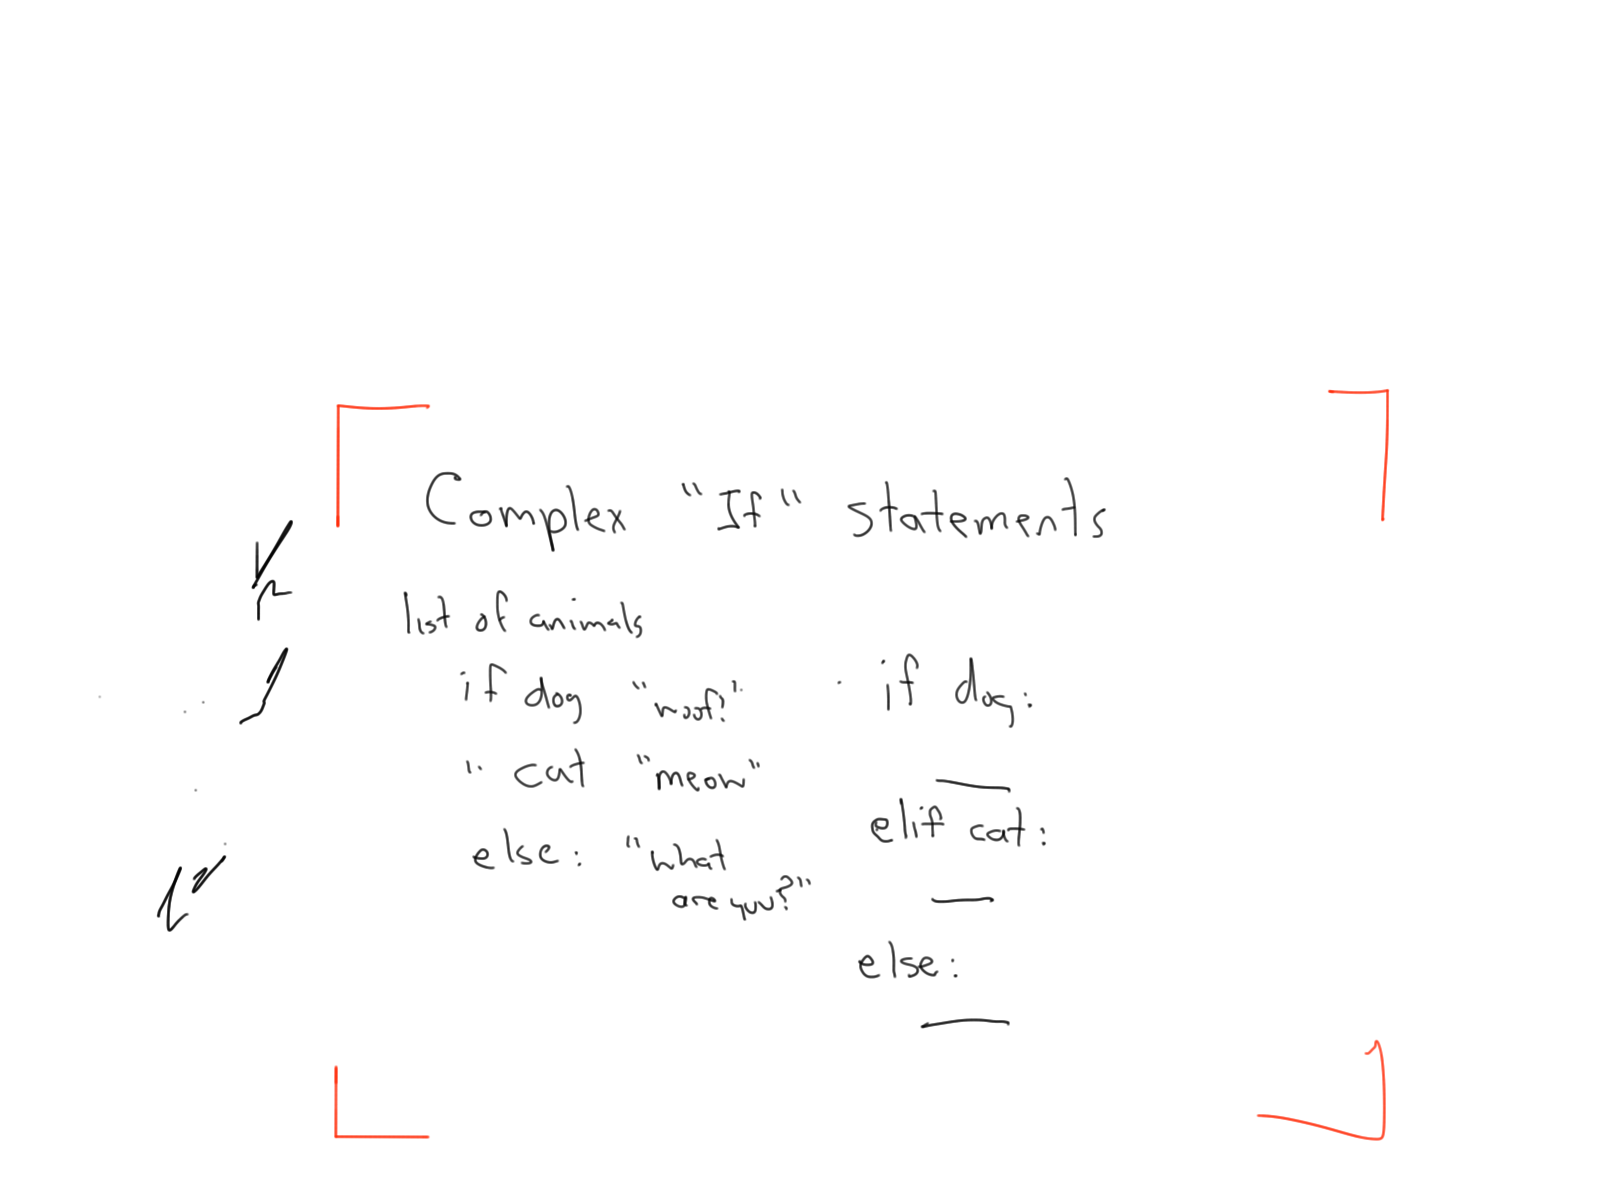 Complex "If" statements
list of animals
if dog "woof!"
" cat "meow"
else: "what
are you?"
if dog:
elif cat:
else: